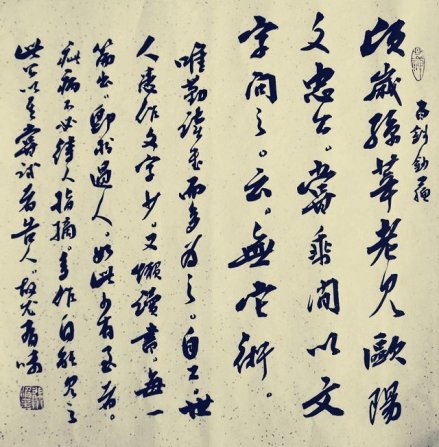 頃歲孫莘老見歐陽
文忠公。嘗乘間以文
字問之。云。無它術。
唯勤讀書而多為之。自工。世
人患作文字少。又懶讀書。每一
篇出。即求過人。如此少有至者。
疵病不必待人指摘。多作自能見之
此公以其嘗試者告人。故尤有味